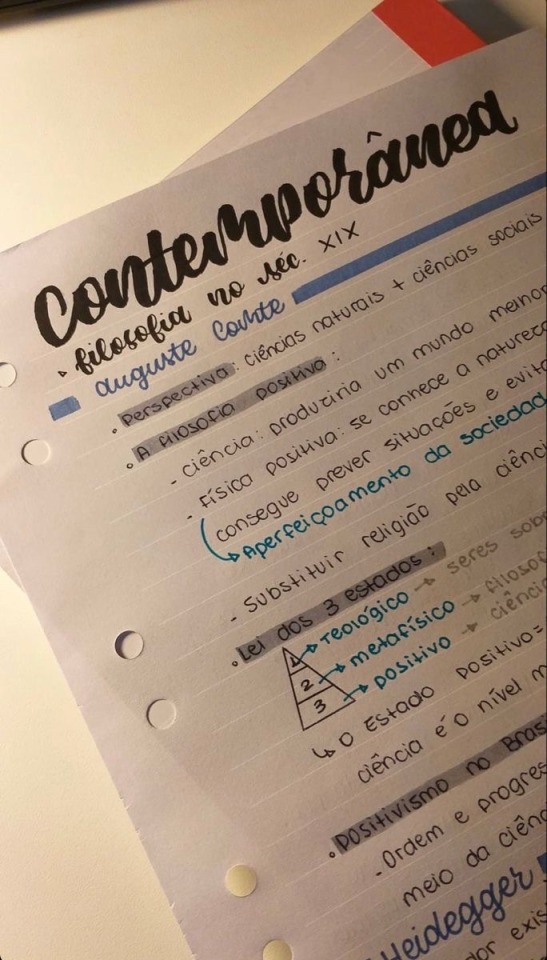 Contemporânea
filosofia no séc. XIX
auguste Comte
• Perspectiva: ciências naturais + ciências sociais
• A filosofia positiva:
- ciência: produziria um mundo
- Física positiva: se conhece a
consegue prever situações e
Aperfeiçoamento da
- Substituir religião pela
• Lei dos 3 estados:
1 → Teológico → seres
2 → metafísico →
3 → positivo →
↳ O Estado positivo=
ciência é o nível
• positivismo no
- Ordem e
meio da
Heidegger